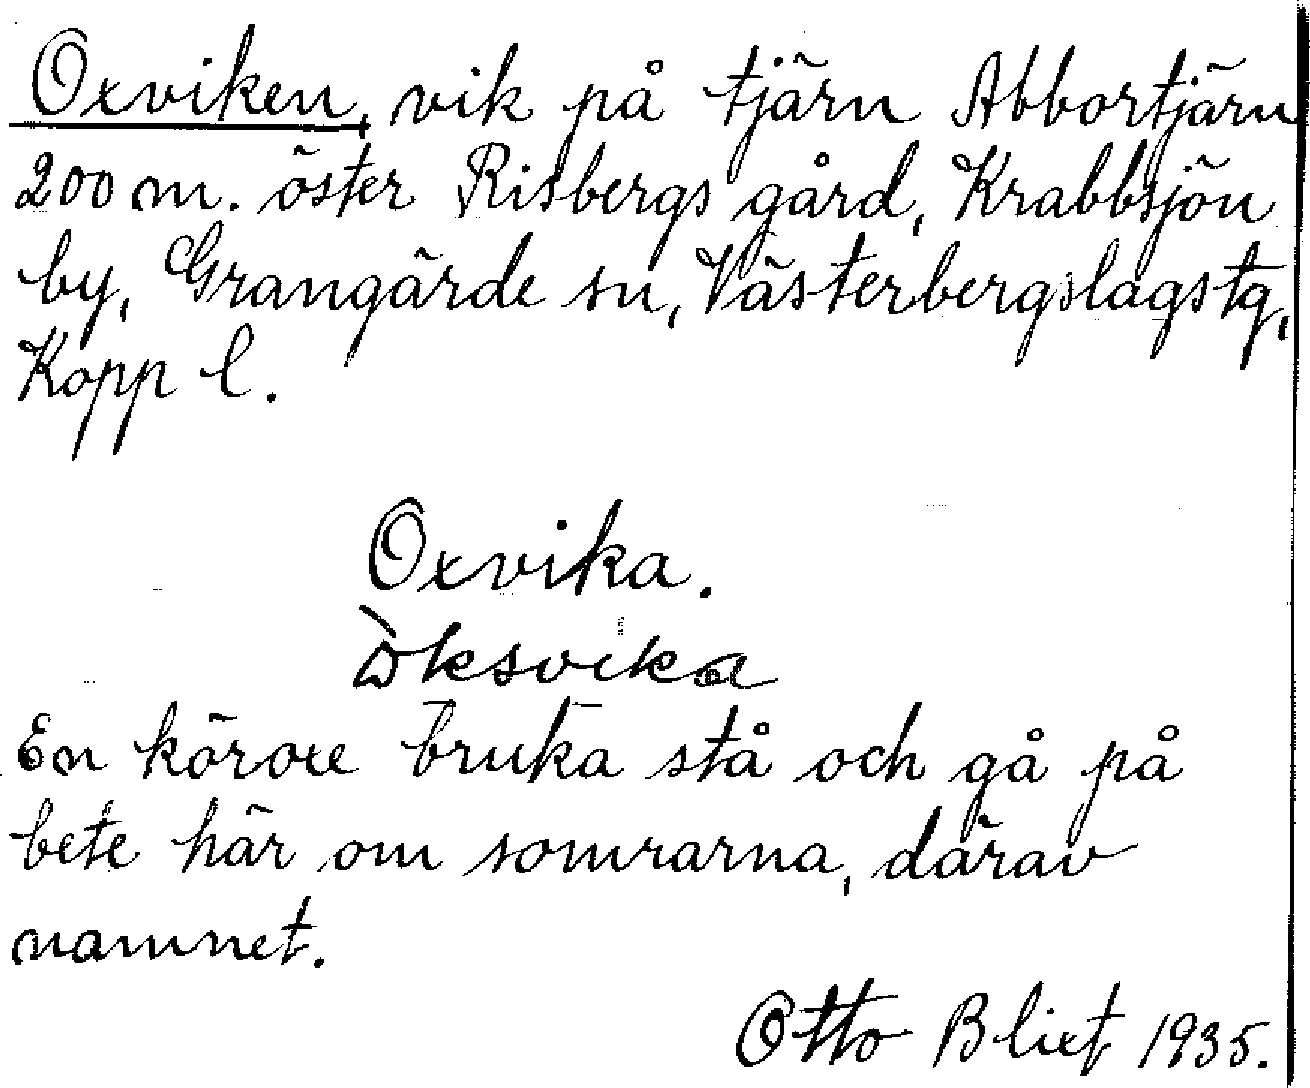 Oxviken, vik på tjärn Abbortjärn
200 m. öster Risbergs gård, Krabbsjön
by, Grangärde sn, Västerbergslagstg,
Kopp l.
Oxvika.
òksvika
En köroxe bruka stå och gå på
bete här om somrarna, därav
namnet.
Otto Blixt 1935.